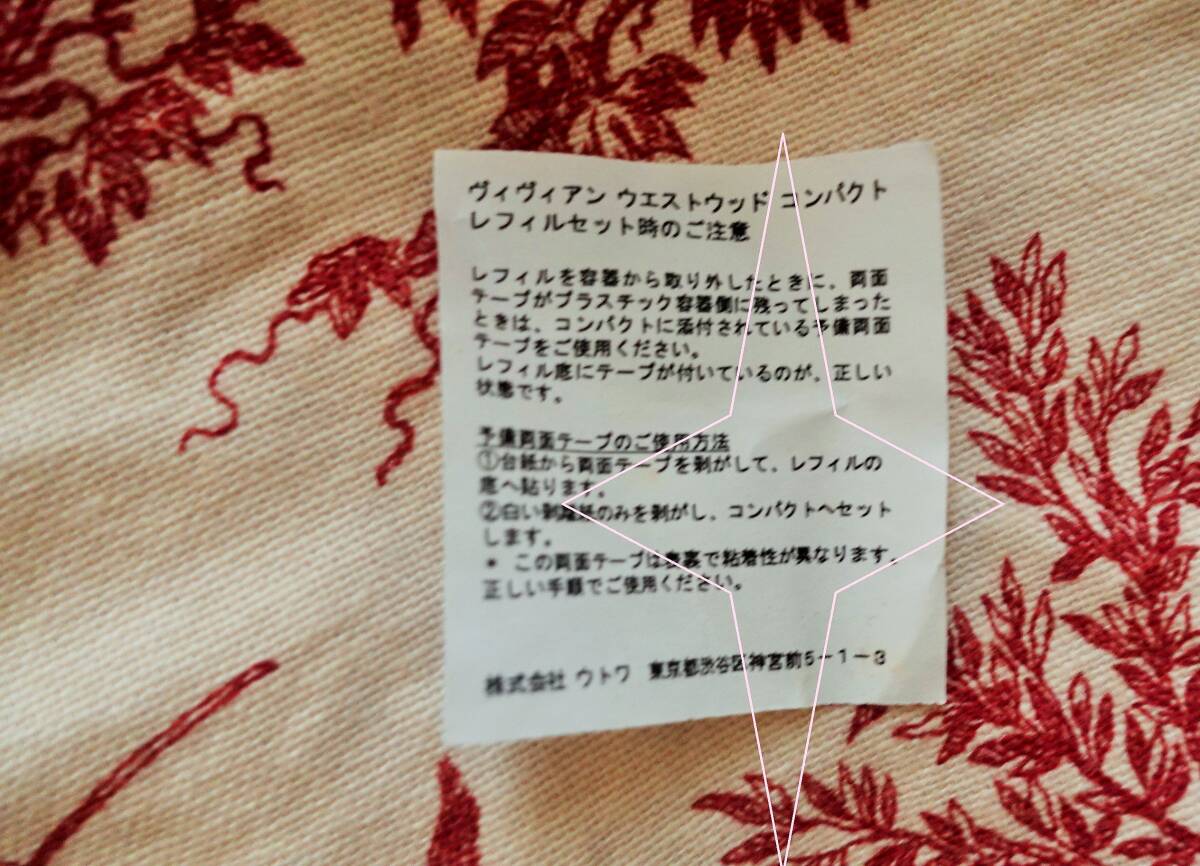 ヴィヴィアン ウエストウッド コンパクト
レフィルセット時のご注意
レフィルを容器から取り外したときに、両面
テープがプラスチック容器側に残ってしまった
ときは、コンパクトに添付されている予備両面
テープをご使用ください。
レフィル底にテープが付いているのが、正しい
状態です。
予備両面テープのご使用方法
①台紙から両面テープを剥がして、レフィルの
底へ貼ります。
②白い剥離紙のみを剥がし、コンパクトへセット
します。
* この両面テープは表裏で粘着性が異なります。
正しい手順でご使用ください。
株式会社 ウトワ 東京都渋谷区神宮前5-1-3